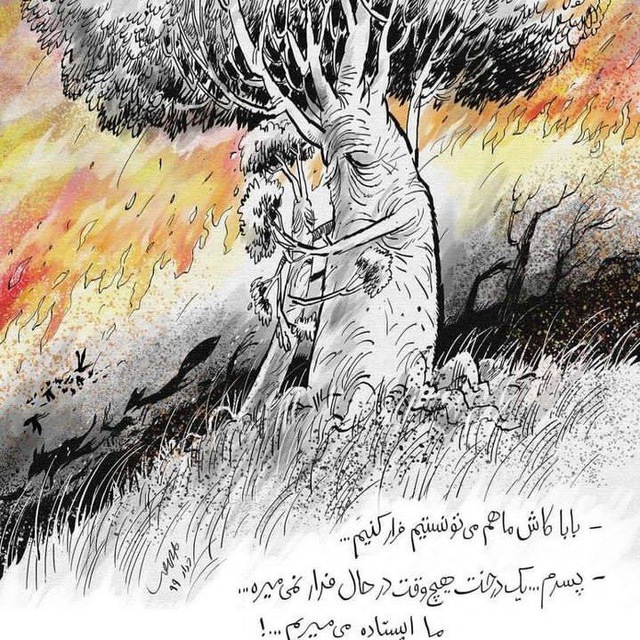 - بابا کاش ما هم می‌تونستیم فرار کنیم...
- پسرم... یک درخت هیچ‌وقت در حال فرار نمی‌میره...
ما ایستاده می‌میریم...!
خرداد ۹۹